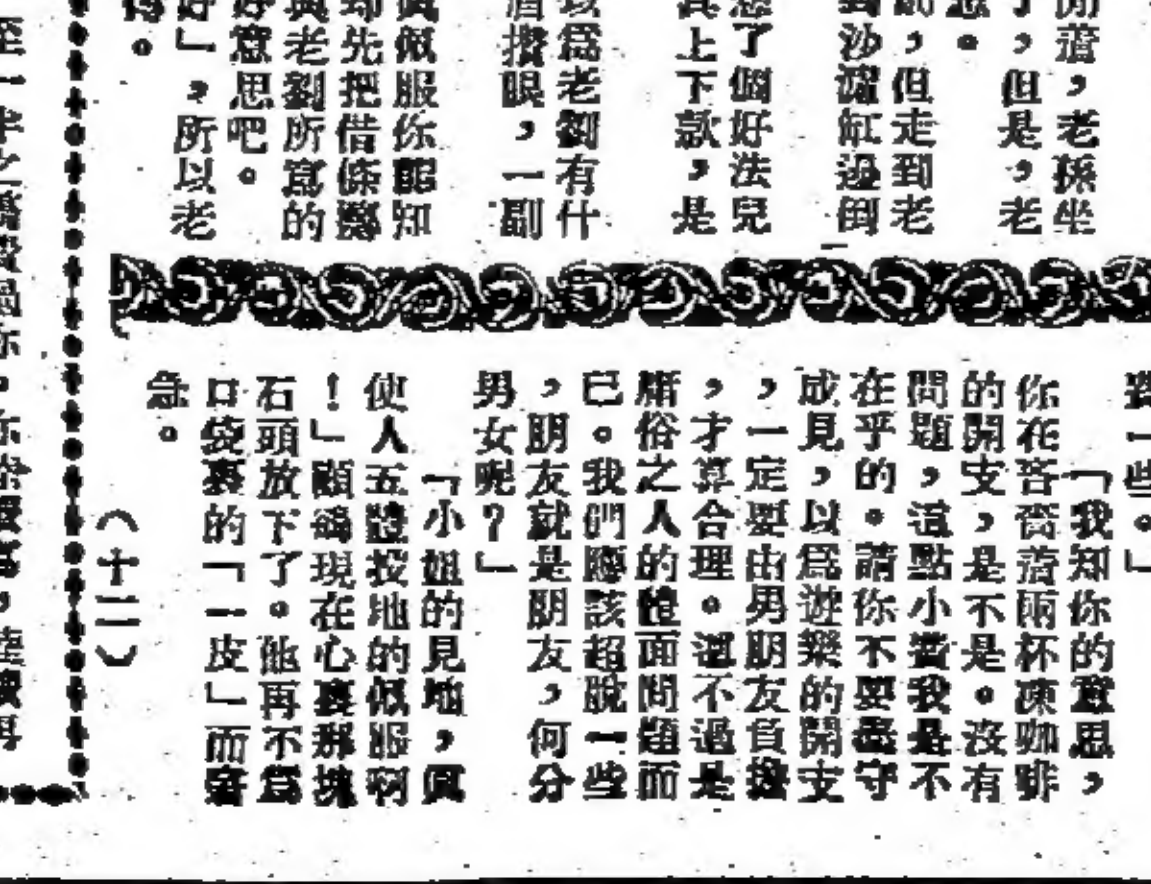 閒蕩，老孫坐
，但是，老
，但走到老
到沙濾缸邊倒
了個好法兒
其上下款，是
該爲老劉有什
眉攢眼，一副
眞佩服你能知
却先把借條鄭
與老劉所寫的
好意思吧。
好」，所以老
。
路一些。」
「我知你的意思，
你在吝嗇着兩杯凍咖啡
的開支，是不是。沒有
問題，這點小賬我是不
在乎的。請你不要墨守
成見，以爲遊樂的開支
，一定要由男朋友負擔
，才算合理。這不過是
庸俗之人的體面問題而
已。我們應該超脫一些
，朋友就是朋友，何分
男女呢？」
「小姐的見地，眞
使人五體投地的佩服啊
！」顧碼現在心裏那塊
石頭放下了。他再不爲
口袋裏的「一皮」而着
急。
（十二）